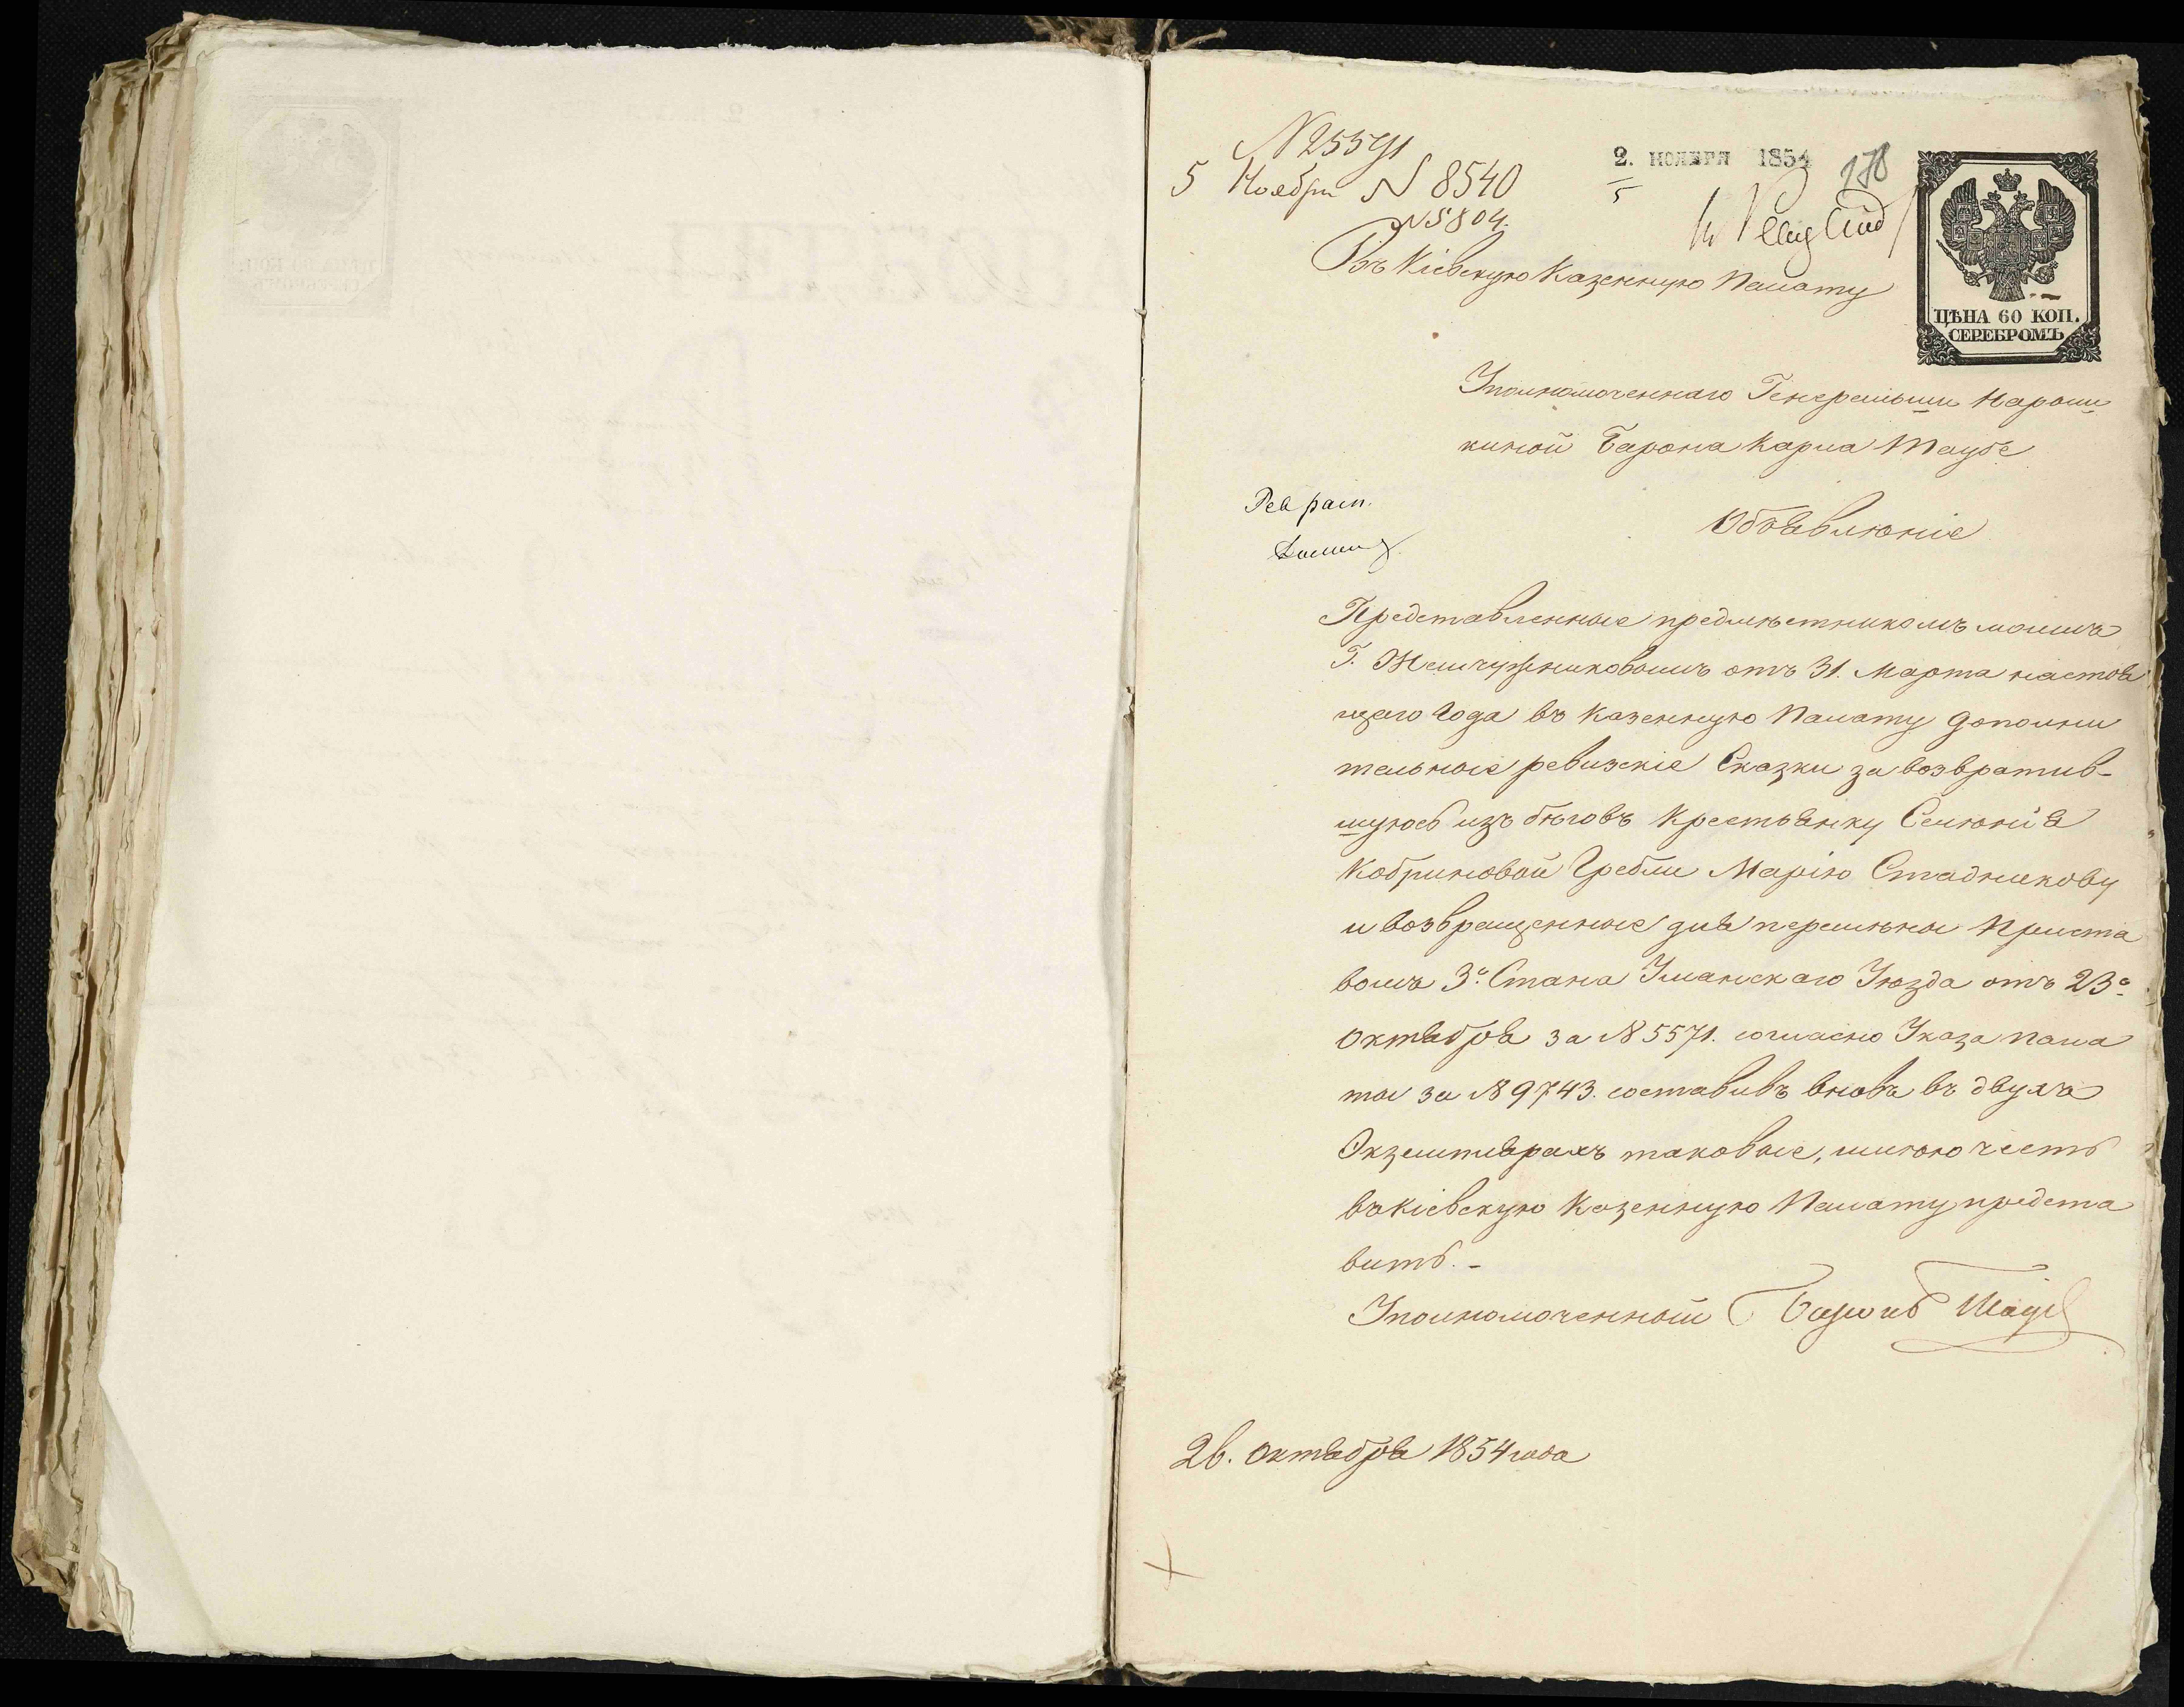 N 25591
5 Ноября N 8540
N 5804.
2. НОЯБРЯ 1854
5
178
ЦѢНА 60 КОП.
СЕРЕБРОМЪ
Въ Кіевскую Казенную Палату
Уполномоченнаго Генеральши Нарыш
киной Барона Карла Таубе
Объявленіе
Рев
Представленные предмѣстникомъ моимъ
Г. Жемчужниковымъ отъ 31. Марта настоя
щаго года въ Казенную Палату дополни
тельные ревизскіе Сказки за возвратив-
шуюсь изъ бѣговъ Крестьянку Селенія
Кобриновой Гребли Марію Стадникову
и возвращенные для перемѣны Приста
вомъ 3го Стана Уманскаго Уѣзда отъ 23го
Октября за N 5571. согласно Указа Пала
ты за N 9743. составивъ вновь въ двухъ
Экземплярахъ таковые, имѣю честь
въ Кіевскую Казенную Палату предста
вить. -
Уполномоченный Баронъ Таубе
26. Октября 1854 года